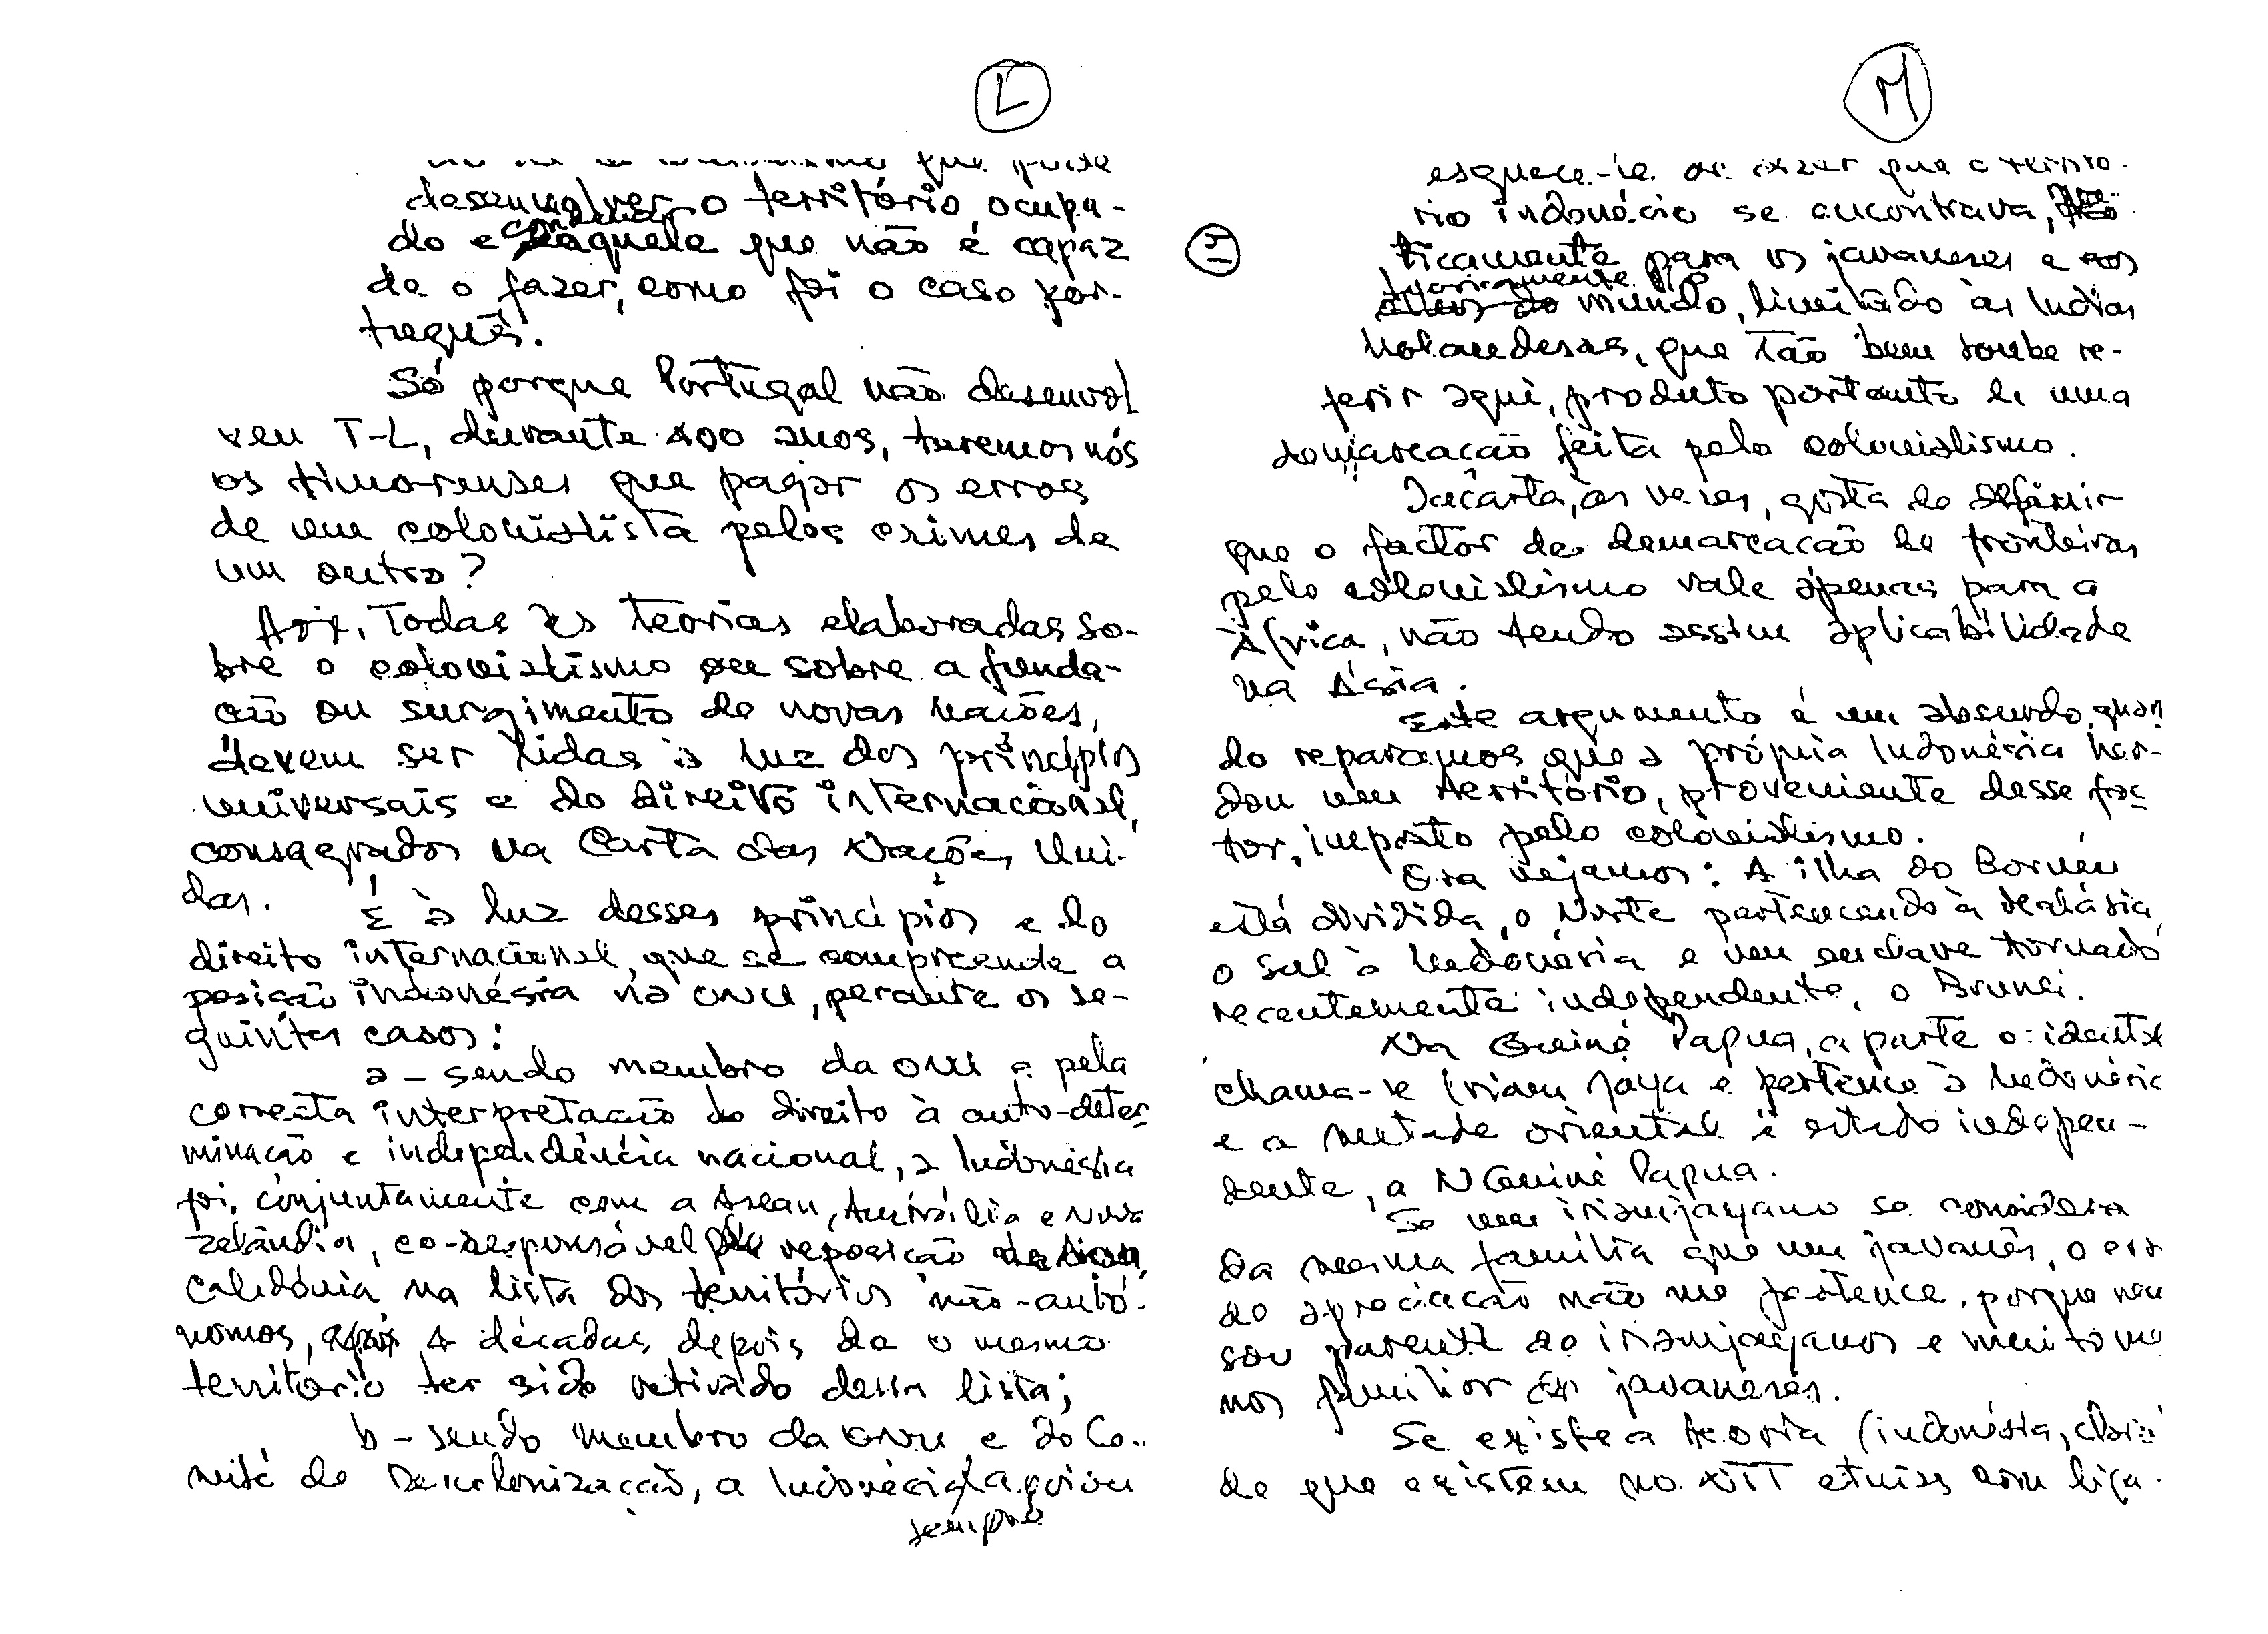 L
que pode
desenvolver o território ocupa-
do e condenar aquele que não é capaz
de o fazer, como foi o caso por-
tuguês.
Só porque Portugal não desenvol
veu T-L, durante 400 anos, teremos nós
os timorenses que pagar os erros
de um colonialista pelos crimes de
um outro?
Hoje, todas as teorias elaboradas so-
bre o colonialismo ou sobre a funda-
ção ou surgimento de novas nações,
devem ser lidas à luz dos princípios
universais e do direito internacional,
consagrados na Carta das Nações Uni-
das.
É à luz desses princípios e do
direito internacional, que se compreende a
posição indonésia na ONU, perante os se-
guintes casos:
a - sendo membro da ONU e pela
correcta interpretação do direito à auto-deter
minação e independência nacional, a Indonésia
foi, conjuntamente com a Asean, Austrália e Nova
Zelândia, co-responsável pela reposição da Nova
Caledónia na lista dos territórios não-autó-
nomos, 4 décadas depois de o mesmo
território ter sido retirado dessa lista;
b - sendo membro da ONU e do Co-
mité de Descolonização, a Indonésia
sempre
M
esquece-se de dizer que o territó-
rio indonésio se encontrava,
ticamente para os javaneses e
teoricamente p/o mundo, limitado às Indias
holandesas, que tão bem soube re-
ferir aqui, produto portanto de uma
demarcação feita pelo colonialismo.
Jacarta, às vezes, gosta de
que o factor de demarcação de fronteiras
pelo colonialismo vale apenas para a
África, não tendo assim aplicabilidade
na Ásia.
Este argumento é um absurdo, quan
do reparamos que a própria Indonésia her-
dou um território, proveniente desse fac
tor, imposto pelo colonialismo.
Ora vejamos: A ilha do Bornéu
está dividida, o Norte pertencendo à Malásia,
o Sul à Indonésia e um enclave tornado
recentemente independente, o Brunei.
Na Guiné Papua, a parte ocidental
chama-se Irian Jaya e pertence à Indonésia
e a metade oriental é estado indepen-
dente, a N Guiné Papua.
Se um irianjayano se considera
da mesma família que um javanês, o
de apreciação não me pertence, porque nem
sou parente de irianjayanos e muito me
nos familiar de javaneses.
Se existe a teoria (indonésia, claro)
de que existem no etnias com liga-